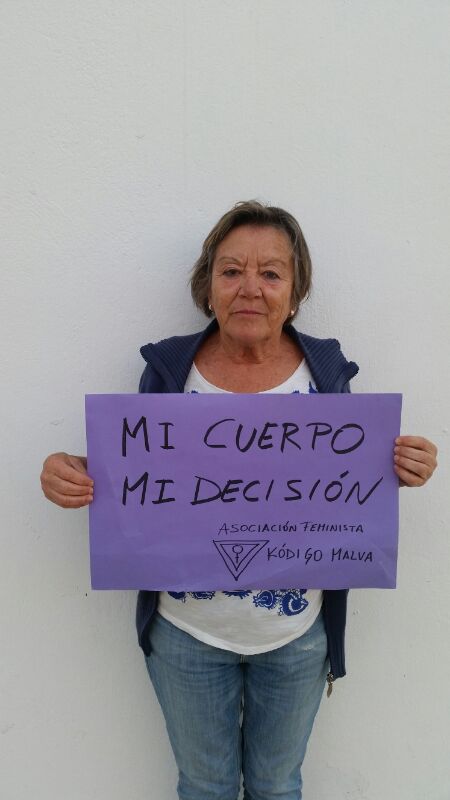 MI CUERPO
MI DECISIÓN
ASOCIACIÓN FEMINISTA
KÓDIGO MALVA